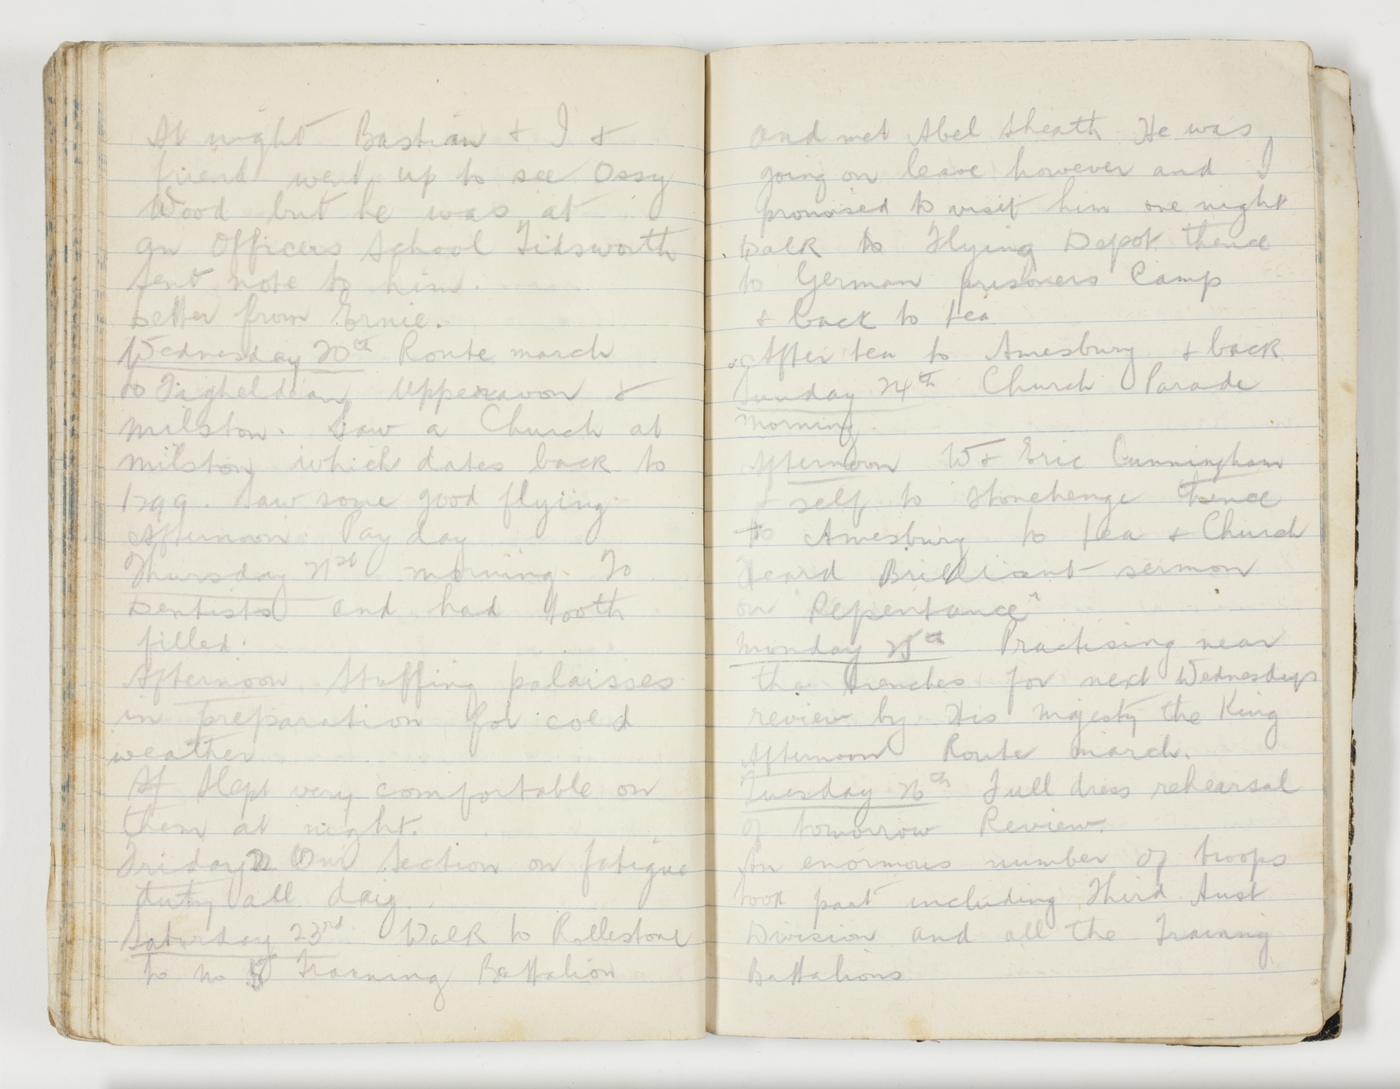 At night Bastian & I &
friend went up to see Ossy
Wood but he was at
an Officers School Tidsworth
sent note to him.
Letter from Ernie.
Wednesday 20th Route march
to Figheldean Upperavon &
Milston. Saw a Church at
Milston which dates back to
1299. Saw some good flying
Afternoon. Pay day
Thursday 21st morning. To
Dentists and had tooth
filled.
Afternoon Stuffing palaisses
in preparation for cold
weather
Slept very comfortable on
them at night.
Friday 22 Our Section on fatigue
duty all day.
Saturday 23rd Walk to Rollestone
to No Training Battalion
and met Abel Sheath He was
going on leave however and I
promised to visit him one night
Walk to Flying Depot thence
to German prisoners Camp
& back to tea
After tea to Amesbury & back
Sunday 24th Church Parade
Morning.
Afternoon W & Eric Cunningham
& self to Stonehenge thence
to Amesbury to tea & Church
Heard Brilliant sermon
on Repentance"
Monday 25th Practising near
the trenches for next Wednesdays
review by His Majesty the King
Afternoon Route march.
Tuesday 26th Full dress rehearsal
of tomorrow Review.
An enormous number of troops
took part including Third Aust
Division and all the Training
Battalions